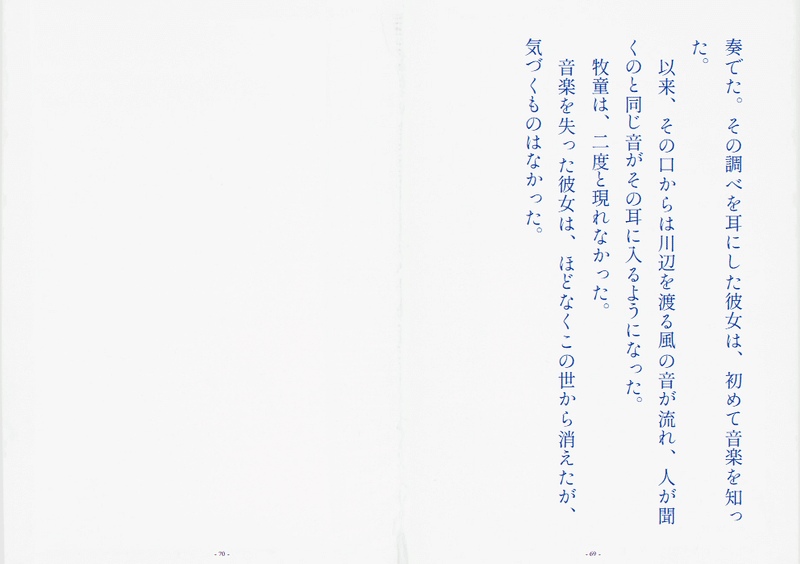 奏でた。その調べを耳にした彼女は、初めて音楽を知っ
た。
以来、その口からは川辺を渡る風の音が流れ、人が聞
くのと同じ音がその耳に入るようになった。
牧童は、二度と現れなかった。
音楽を失った彼女は、ほどなくこの世から消えたが、
気づくものはなかった。
- 69 -
- 70 -